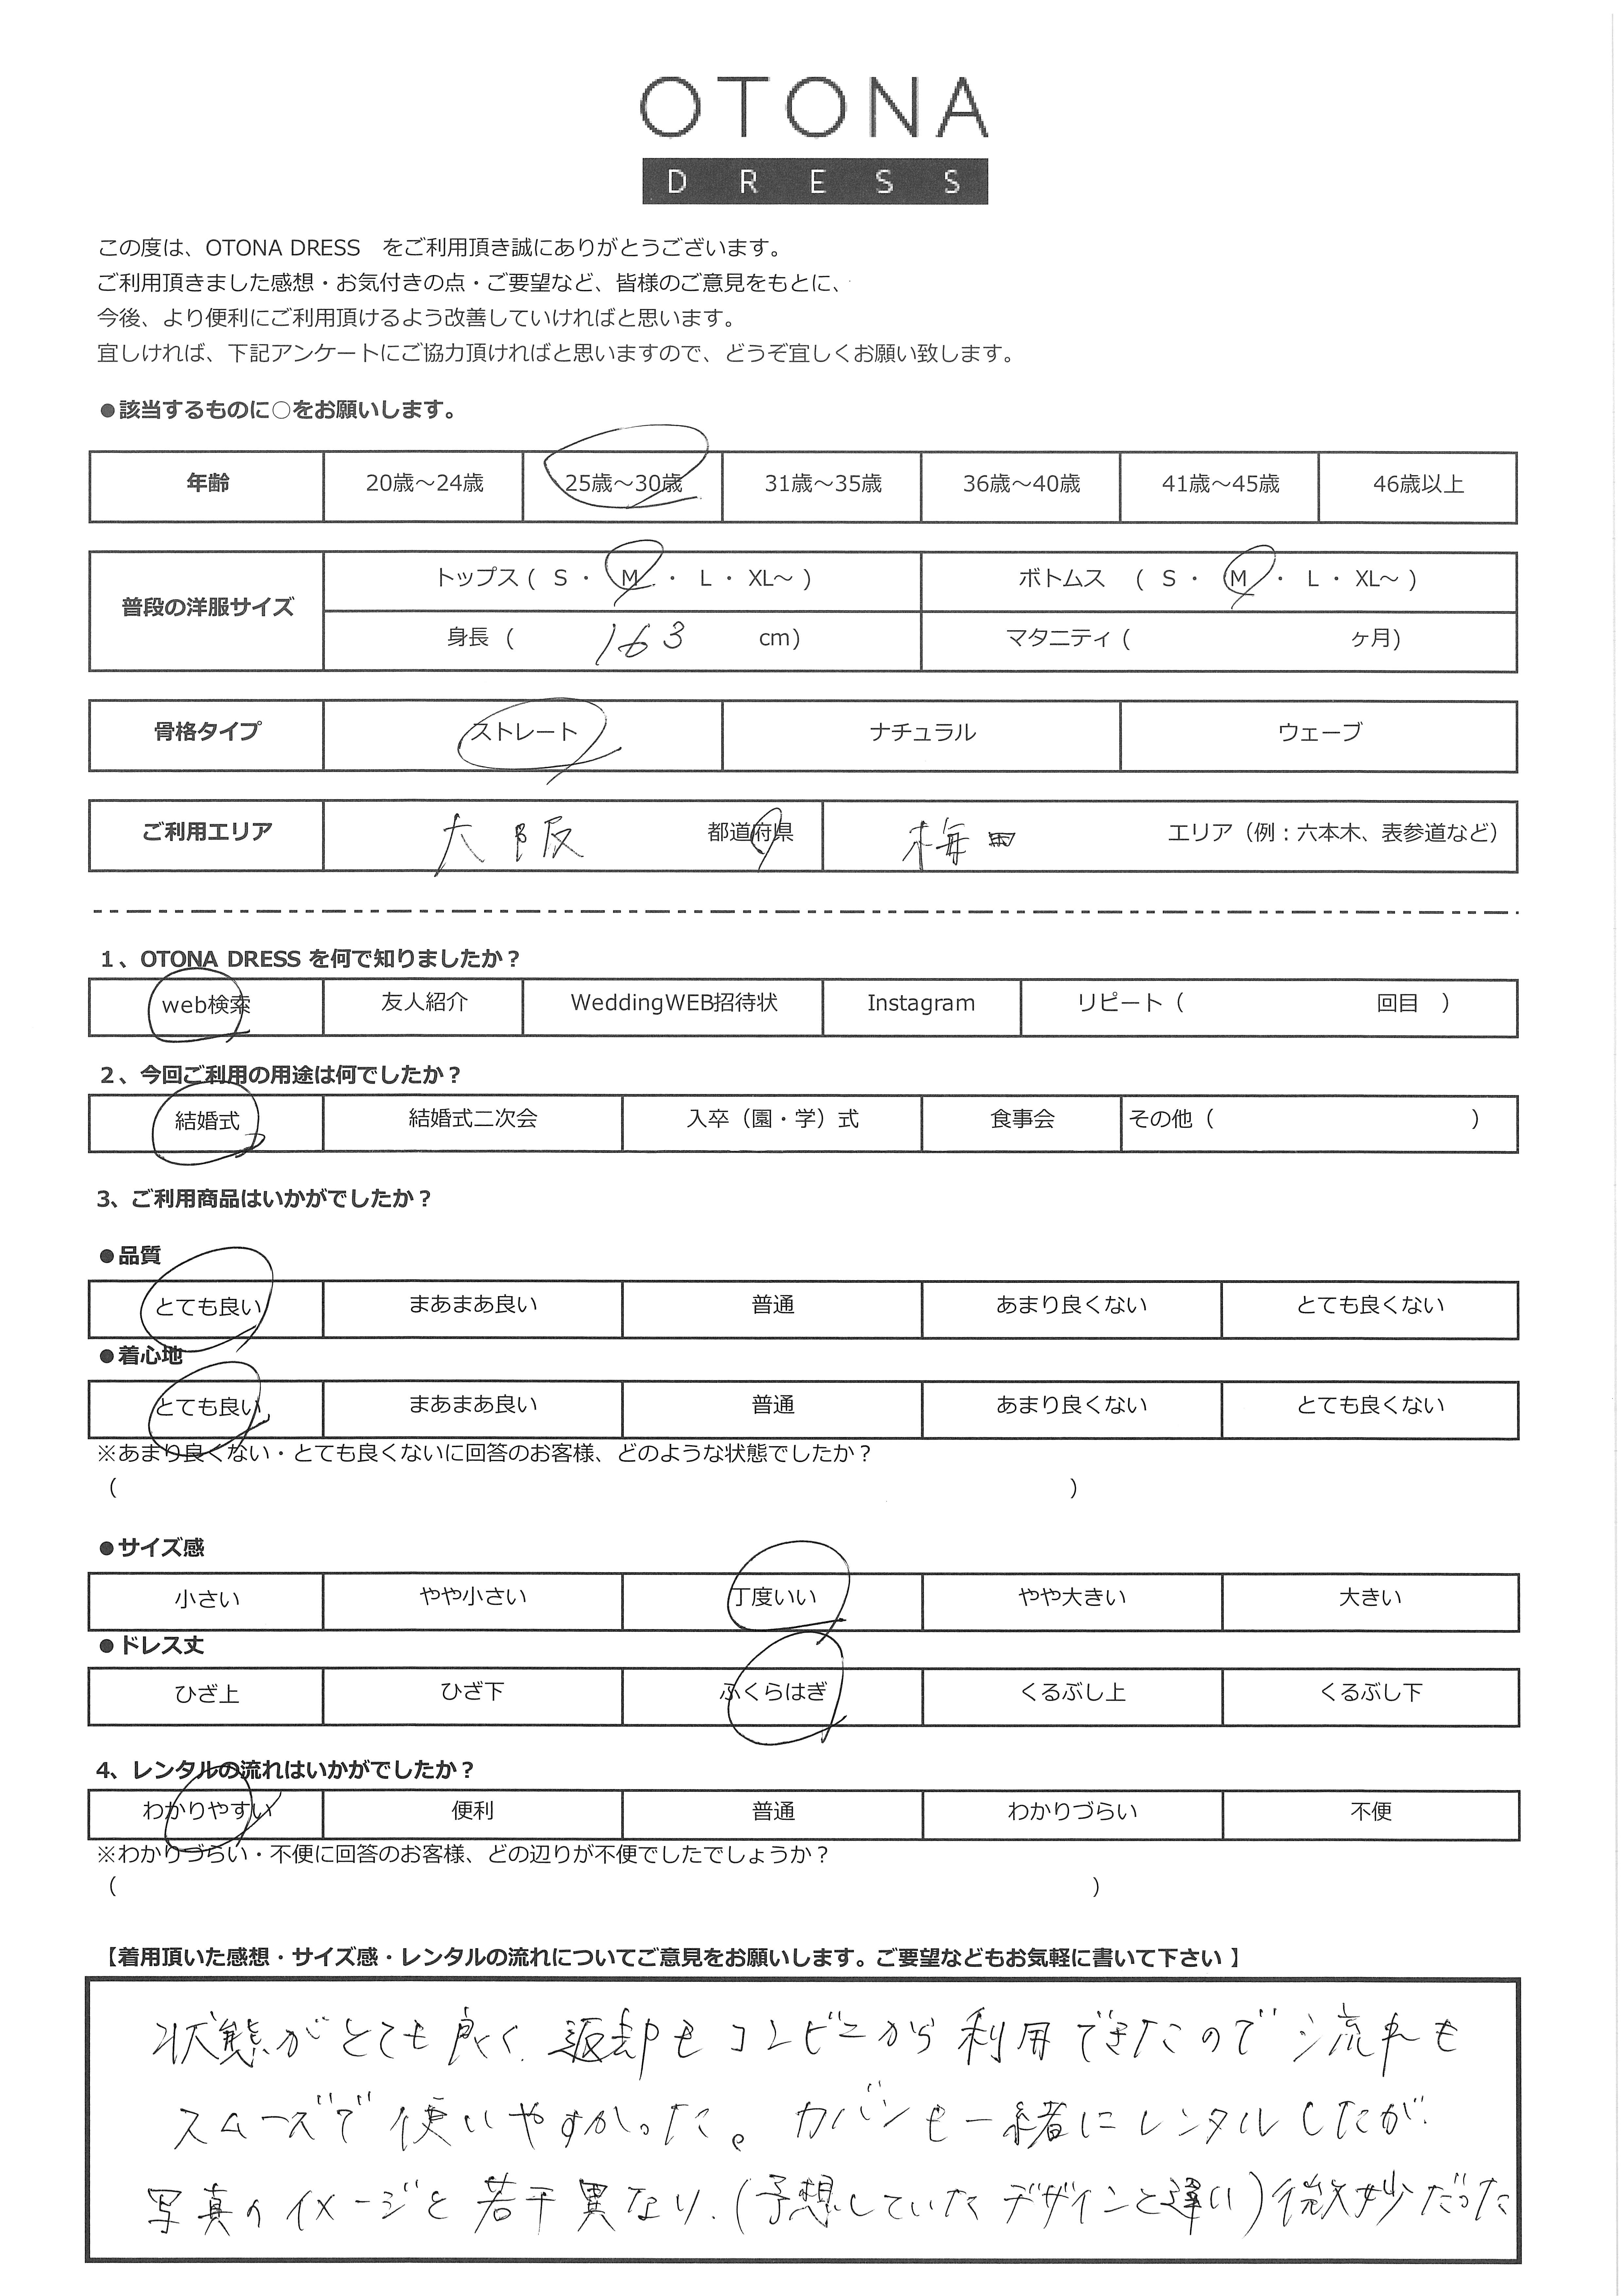 OTONA
DRESS
この度は、OTONA DRESS をご利用頂き誠にありがとうございます。
ご利用頂きました感想・お気付きの点・ご要望など、皆様のご意見をもとに、
今後、より便利にご利用頂けるよう改善していければと思います。
宜しければ、下記アンケートにご協力頂ければと思いますので、どうぞ宜しくお願い致します。
●該当するものに○をお願いします。
年齢 20歳～24歳 25歳～30歳 31歳～35歳 36歳～40歳 41歳～45歳 46歳以上
普段の洋服サイズ
トップス ( S ・ M ・ L ・ XL～ ) ボトムス ( S ・ M ・ L ・ XL～ )
身長 ( 163 cm) マタニティ ( ヶ月)
骨格タイプ ストレート ナチュラル ウェーブ
ご利用エリア 大阪 都道府県 梅田 エリア（例：六本木、表参道など）
1、OTONA DRESS を何で知りましたか？
web検索 友人紹介 WeddingWEB招待状 Instagram リピート（ 回目 ）
2、今回ご利用の用途は何でしたか？
結婚式 結婚式二次会 入卒（園・学）式 食事会 その他（ ）
3、ご利用商品はいかがでしたか？
●品質
とても良い まあまあ良い 普通 あまり良くない とても良くない
●着心地
とても良い まあまあ良い 普通 あまり良くない とても良くない
※あまり良くない・とても良くないに回答のお客様、どのような状態でしたか？
（ ）
●サイズ感
小さい やや小さい 丁度いい やや大きい 大きい
●ドレス丈
ひざ上 ひざ下 ふくらはぎ くるぶし上 くるぶし下
4、レンタルの流れはいかがでしたか？
わかりやすい 便利 普通 わかりづらい 不便
※わかりづらい・不便に回答のお客様、どの辺りが不便でしたでしょうか？
（ ）
【着用頂いた感想・サイズ感・レンタルの流れについてご意見をお願いします。ご要望などもお気軽に書いて下さい 】
状態がとても良く、返却もコンビニから利用できたので流れも
スムーズで使いやすかった。カバンも一緒にレンタルしたが、
写真のイメージと若干異なり、(予想していたデザインと違い)微妙だった